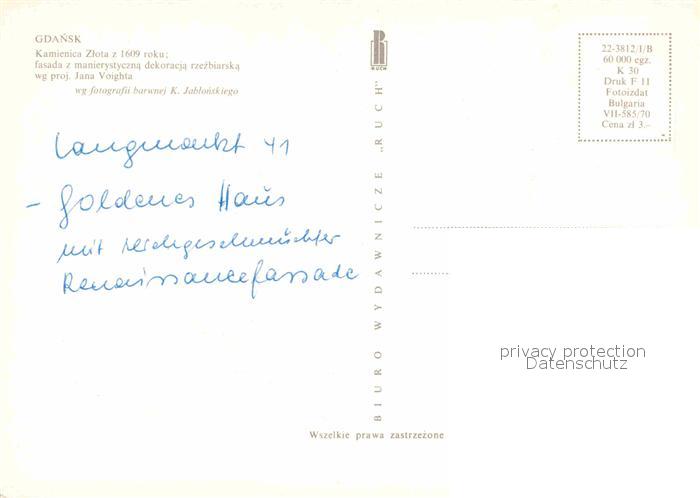 GDAŃSK
Kamienica Złota z 1609 roku;
fasada z manierystyczną dekoracją rzeźbiarską
wg proj. Jana Voighta
wg fotografii barwnej K. Jabłońskiego
RUCH
22-3812/I/B
60 000 egz.
K 30
Druk F 11
Fotoizdat
Bulgaria
VII-585/70
Cena zł 3.-
Langmarkt 41
- Goldenes Haus
mit reichgeschmückter
Renaissancefassade
BIURO WYDAWNICZE „RUCH"
privacy protection
Datenschutz
Wszelkie prawa zastrzeżone